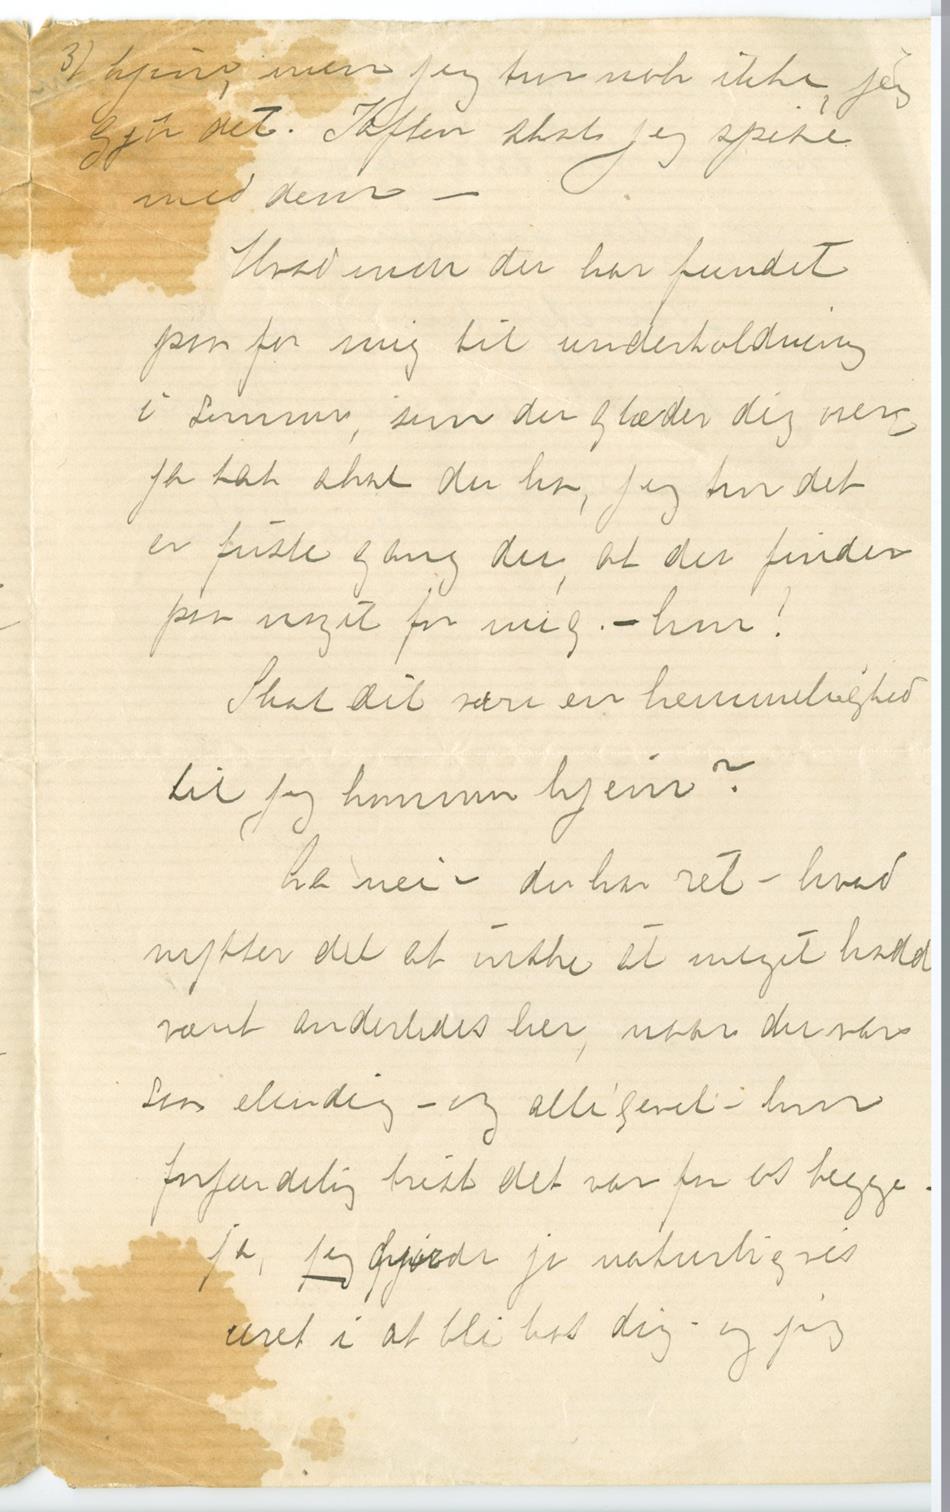 3) hjem, men jeg tror nok ikke, jeg
gjør det. Iaften skal jeg spise
med dem –
Hvad mon du har fundet
paa for mig til underholdning
i sommer, som du glæder dig over,
ja tak skal du ha, jeg tror det
er første gang du, at du finder
paa noget for mig. – hvor!
Skal dit være en hemmelighed
til jeg kommer hjem?
Aa nei – du har ret – hvad
nytter det at ønske at meget hadde
været anderledes her, naar du var
saa elendig – og alligevel – hvor
forfærdelig trist det var for os begge.
ja, jeg gjorde jo naturligvis
uret i at bli hos dig – og jeg